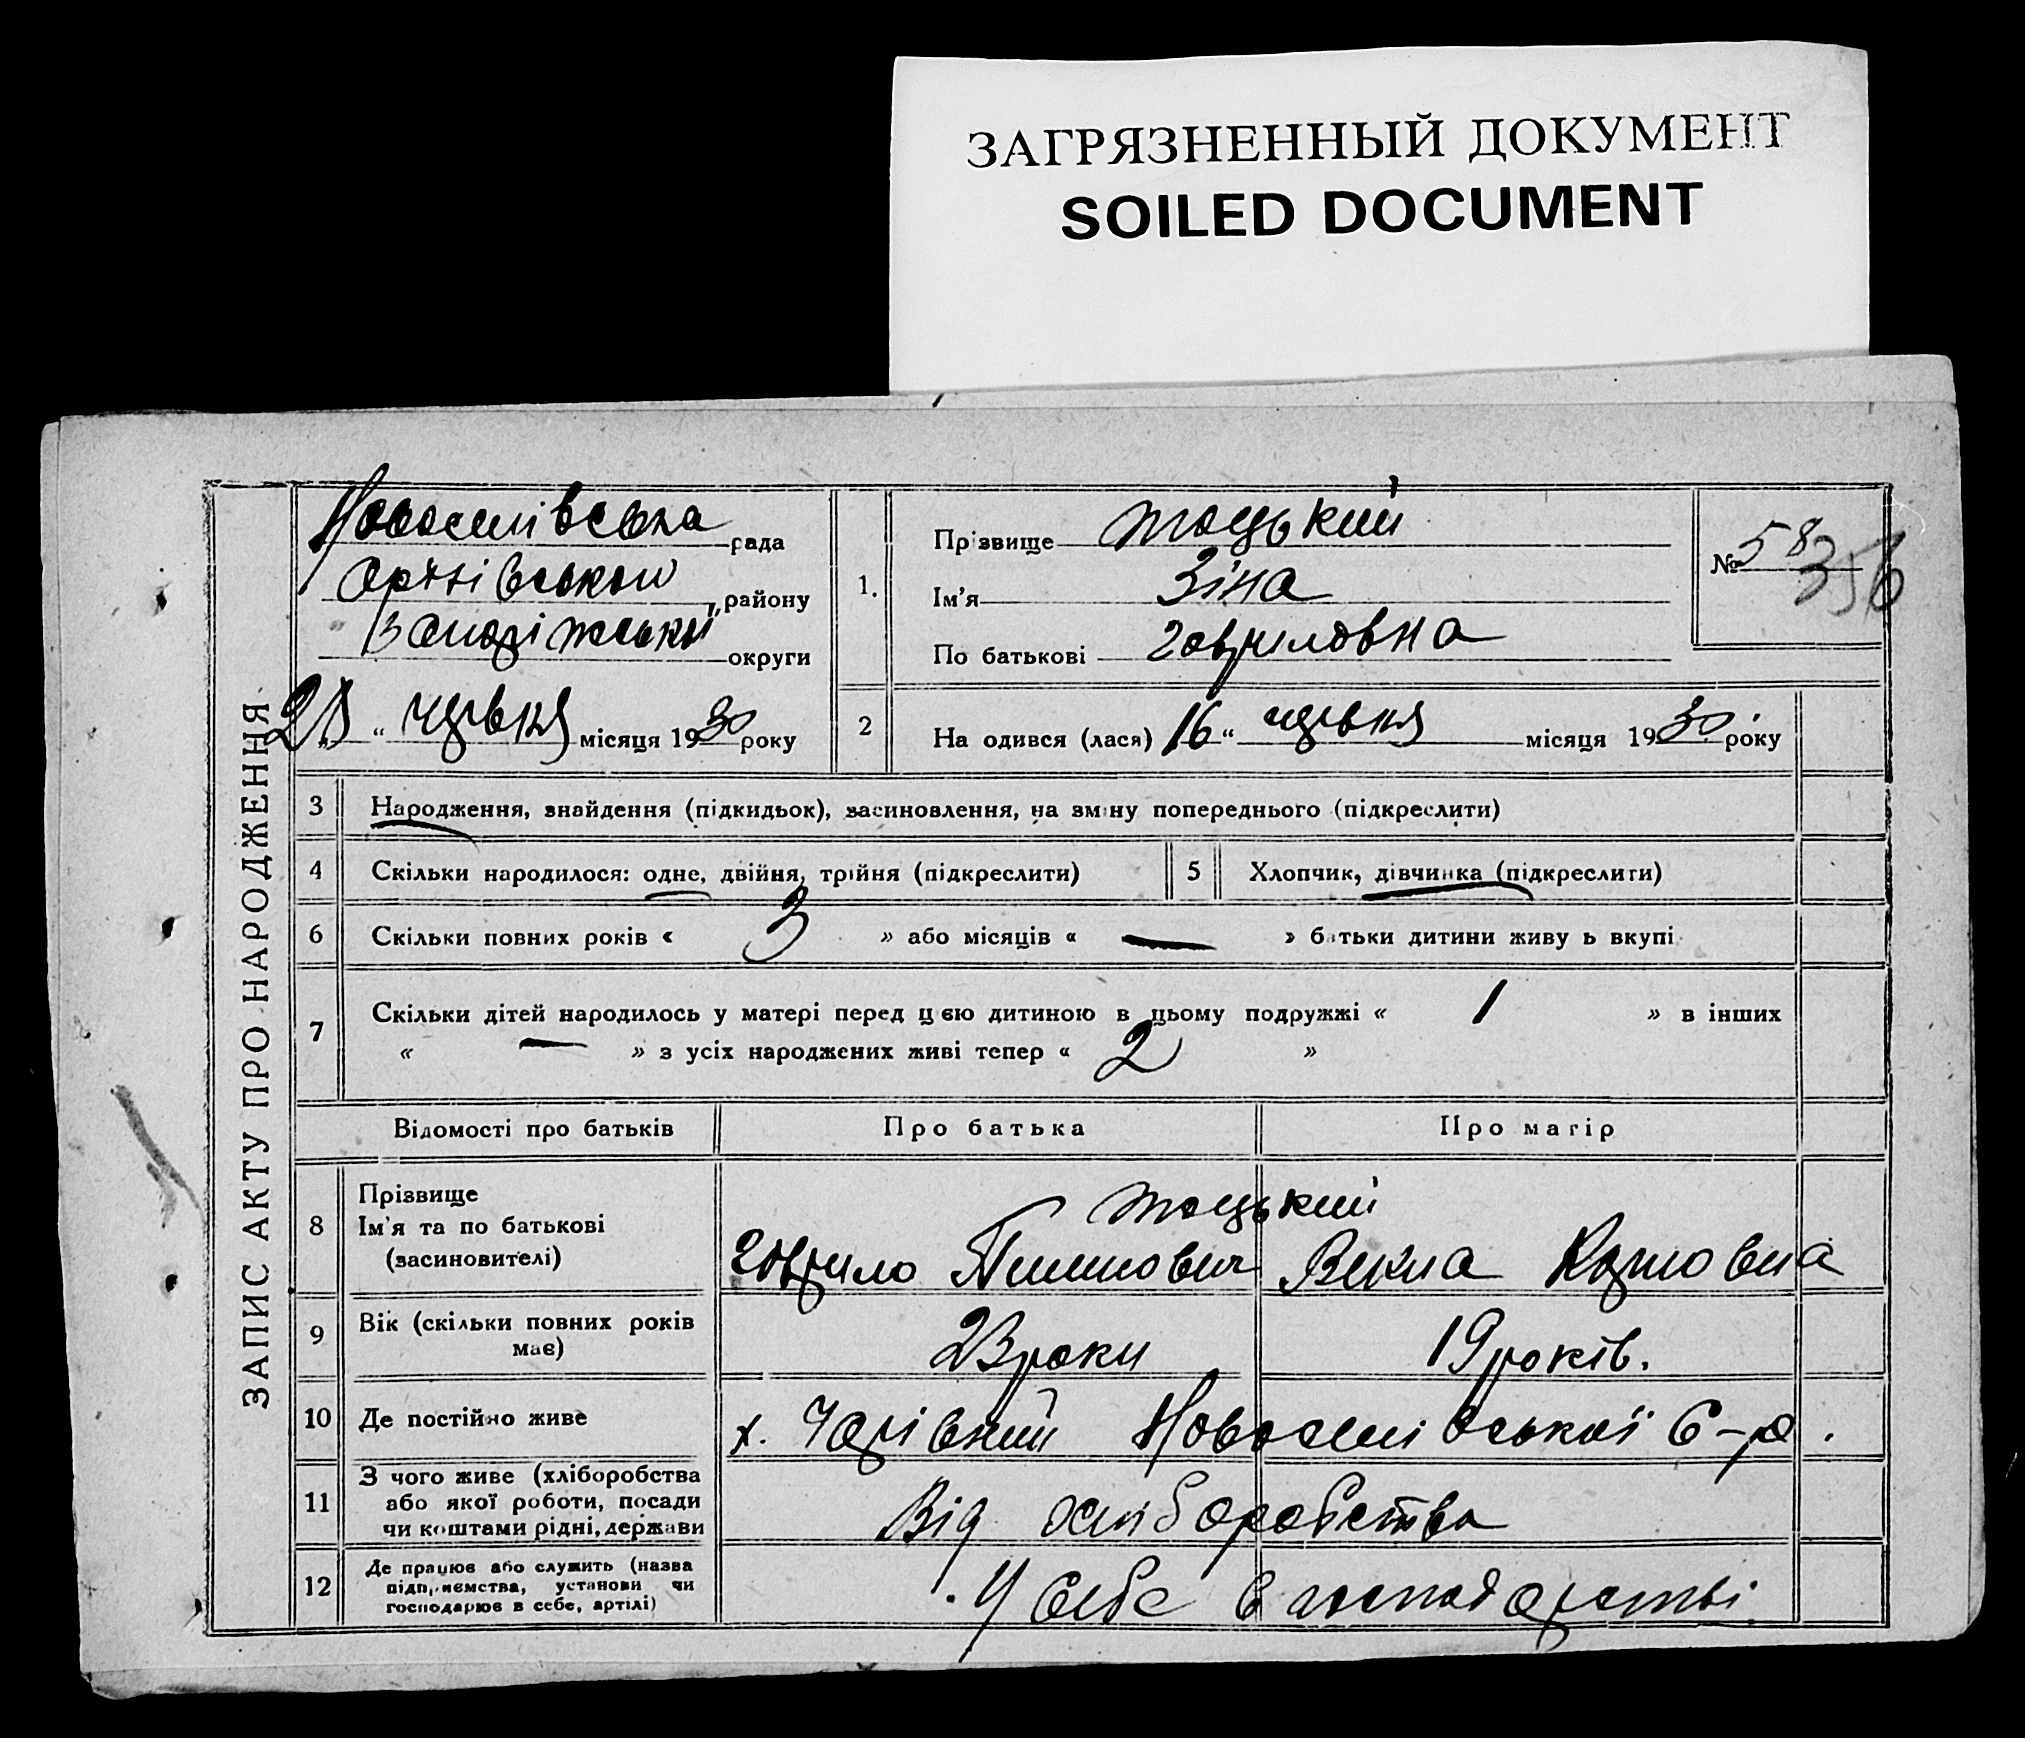 ЗАГРЯЗНЕННЫЙ ДОКУМЕНТ
SOILED DOCUMENT
ЗАПИС АКТУ ПРО НАРОДЖЕННЯ
Новоселівська рада
району
округи
червня місяця 1930 року
1. Прізвище Тоцький
Ім'я Зіна
По батькові Гавриловна
№ 58
356
2 На одився (лася) 16 " червня місяця 1930 року
3 Народження, знайдення (підкидьок), засиновлення, на зміну попереднього (підкреслити)
4 Скільки народилося: одне, двійня, трійня (підкреслити)
5 Хлопчик, дівчинка (підкреслити)
6 Скільки повних років « 3 » або місяців « — » батьки дитини живу ь вкупі
7 Скільки дітей народилось у матері перед цією дитиною в цьому подружжі « 1 » в інших
« — » з усіх народжених живі тепер « 2 »
Відомості про батьків Про батька Про матір
8 Прізвище
Ім'я та по батькові
(засиновителі)
Тоцький
Гаврило Пилипович
9 Вік (скільки повних років
має)
23 роки 19 років.
10 Де постійно живе
х. Новоселівської с-р.
11 З чого живе (хліборобства
або якої роботи, посади
чи коштами рідні, держави
Від хліборобства
12 Де працює або служить (назва
підприємства, установи чи
господарює в себе, артілі)
У себе в господарстві.